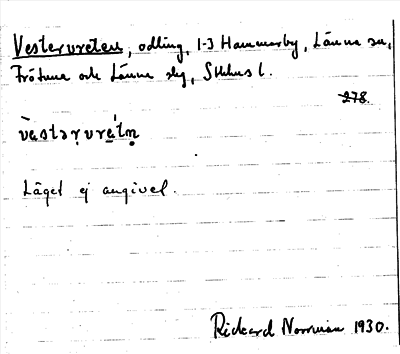 Vestervreten, odling, 1-3 Hammarby, Länna sn,
Frötuna och Länna slg, Sthlms l.
278.
västərvrétṇ
Läget ej angivet.
Rickard Norrman 1930.